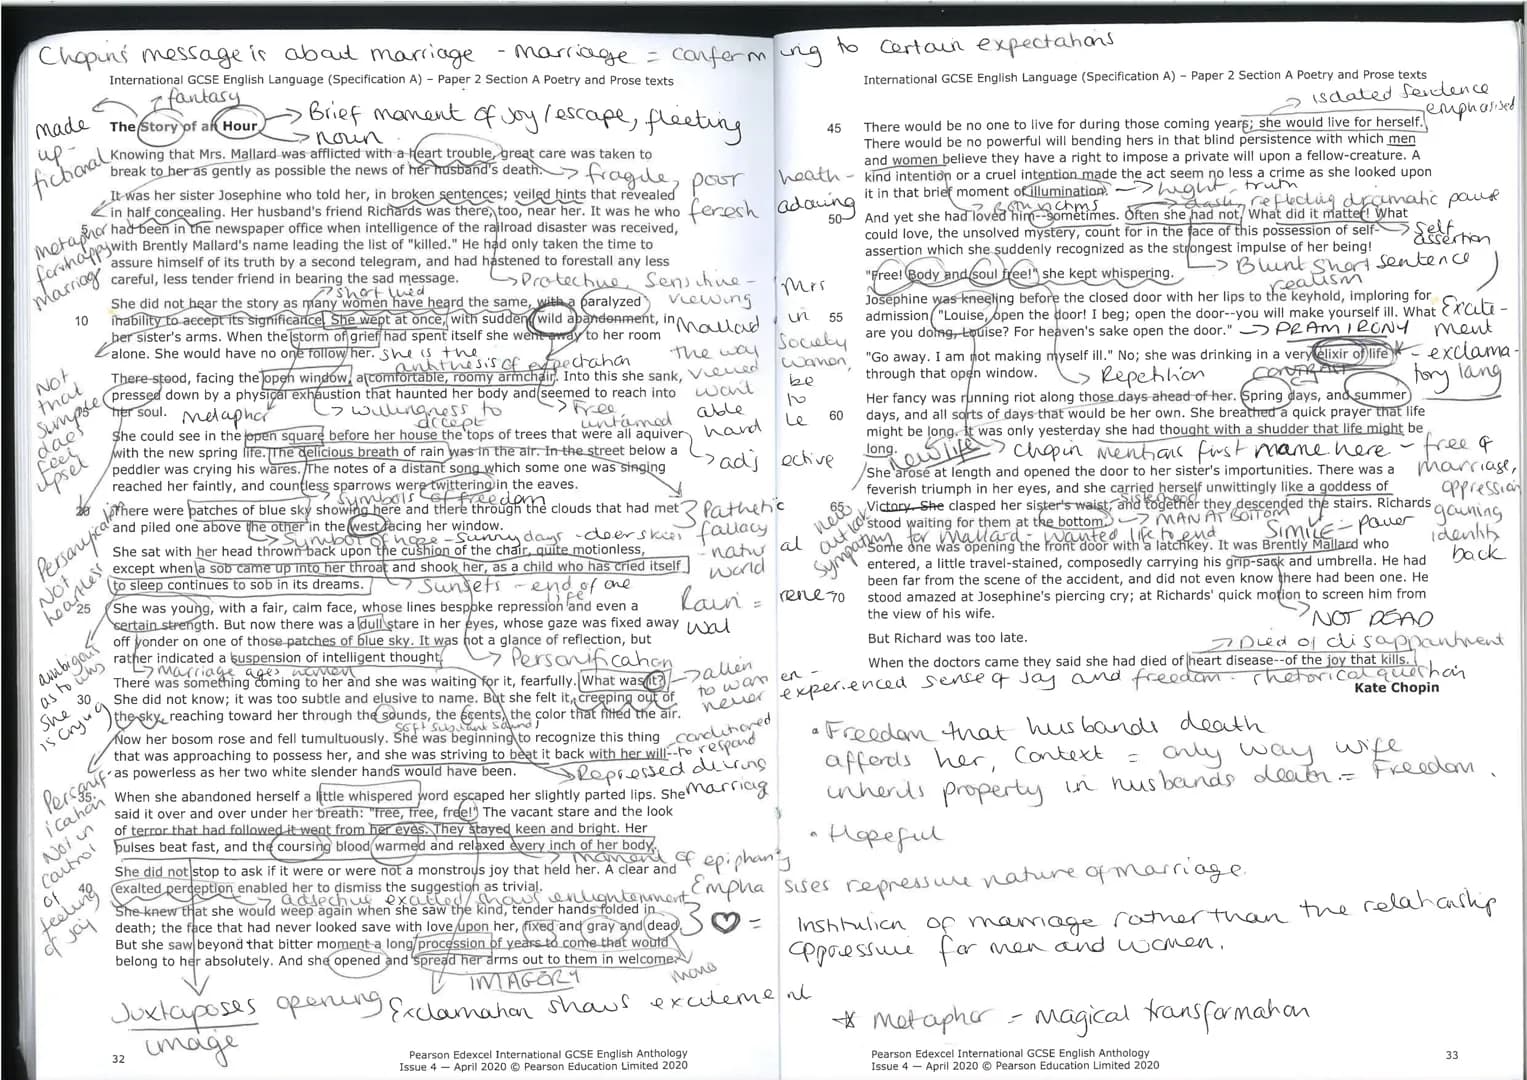 Chopin's message is about marriage - marriage = conferming to certain expectations
International GCSE English Language (Specification A) – Paper 2 Section A Poetry and Prose texts
fantasy
made up - fictional
Brief moment of joy/escape, fleeting
noun
The Story of an Hour
Knowing that Mrs. Mallard was afflicted with a heart trouble, great care was taken to
break to her as gently as possible the news of her husband's death.
fragile, poor heath -
It was her sister Josephine who told her, in broken sentences; veiled hints that revealed
in half concealing. Her husband's friend Richards was there, too, near her. It was he who
5 had been in the newspaper office when intelligence of the railroad disaster was received,
with Brently Mallard's name leading the list of "killed." He had only taken the time to
assure himself of its truth by a second telegram, and had hastened to forestall any less
careful, less tender friend in bearing the sad message.
metaphor for unhappy marriage
Protective, Sensitive - viewing Mrs Mallard in the way Society viewed women,
short lived
She did not hear the story as many women have heard the same, with a paralyzed
10 inability to accept its significance. She wept at once, with sudden, wild abandonment, in
her sister's arms. When the storm of grief had spent itself she went away to her room
alone. She would have no one follow her.
She is the antithesis of expectation
There stood, facing the open window, a comfortable, roomy armchair. Into this she sank,
pressed down by a physical exhaustion that haunted her body and seemed to reach into
15 her soul.
Metaphor
willingness to accept
Free, untamed
Not that simple does feel upset
She could see in the open square before her house the tops of trees that were all aquiver
with the new spring life. The delicious breath of rain was in the air. In the street below a
peddler was crying his wares. The notes of a distant song which some one was singing
reached her faintly, and countless sparrows were twittering in the eaves.
adjective
Symbols of freedom
20 There were patches of blue sky showing here and there through the clouds that had met
and piled one above the other in the west facing her window.
Pathetic fallacy - natural world
Symbol of hope - Sunny days -
She sat with her head thrown back upon the cushion of the chair, quite motionless,
except when a sob came up into her throat and shook her, as a child who has cried itself
to sleep continues to sob in its dreams.
Sunsets - end of one life
Personification
Not heartless
25 She was young, with a fair, calm face, whose lines bespoke repression and even a
certain strength. But now there was a dull stare in her eyes, whose gaze was fixed away
off yonder on one of those patches of blue sky. It was not a glance of reflection, but
rather indicated a suspension of intelligent thought.
Rain = renewal
Personification
Marriage ages women
ambiguous as to why she is crying
There was something coming to her and she was waiting for it, fearfully. What was it?
30 She did not know; it was too subtle and elusive to name. But she felt it, creeping out of
the sky, reaching toward her through the sounds, the scents, the color that filled the air.
alien to women - never experienced sense of joy and freedom - rhetorical question
Now her bosom rose and fell tumultuously. She was beginning to recognize this thing
that was approaching to possess her, and she was striving to beat it back with her will--
as powerless as her two white slender hands would have been.
conditioned to respond
Repressed during marriage
Personification
Not in control of feeling of joy
35 When she abandoned herself a little whispered word escaped her slightly parted lips. She
said it over and over under her breath: "free, free, free!" The vacant stare and the look
of terror that had followed it went from her eyes. They stayed keen and bright. Her
pulses beat fast, and the coursing blood warmed and relaxed every inch of her body.
moment of epiphany
She did not stop to ask if it were or were not a monstrous joy that held her. A clear and
40 exalted perception enabled her to dismiss the suggestion as trivial.
adjective exalted shows enlightenment
She knew that she would weep again when she saw the kind, tender hands folded in
death; the face that had never looked save with love upon her, fixed and gray and dead.
But she saw beyond that bitter moment a long procession of years to come that would
belong to her absolutely. And she opened and spread her arms out to them in welcome.
IMAGERY
Juxtaposes opening image
Exclamation shows excitement
32
Pearson Edexcel International GCSE English Anthology
Issue 4 — April 2020 © Pearson Education Limited 2020
International GCSE English Language (Specification A) – Paper 2 Section A Poetry and Prose texts
isolated Sentence emphasised
45 There would be no one to live for during those coming years; she would live for herself.
There would be no powerful will bending hers in that blind persistence with which men
and women believe they have a right to impose a private will upon a fellow-creature. A
kind intention or a cruel intention made the act seem no less a crime as she looked upon
it in that brief moment of illumination.
light, truth
Both victims
dash, reflecting dramatic pause
50 And yet she had loved him--sometimes. Often she had not. What did it matter! What
could love, the unsolved mystery, count for in the face of this possession of self-
assertion which she suddenly recognized as the strongest impulse of her being!
Self assertion
Blunt Short sentence
realism
"Free! Body and soul free!" she kept whispering.
Josephine was kneeling before the closed door with her lips to the keyhold, imploring for
55 admission. "Louise, open the door! I beg; open the door--you will make yourself ill. What
are you doing, Louise? For heaven's sake open the door."
DRAM IRONY
Excitement - exclamatory lang
"Go away. I am not making myself ill." No; she was drinking in a very elixir of life
through that open window.
Repetition
contrast
Her fancy was running riot along those days ahead of her. Spring days, and summer
60 days, and all sorts of days that would be her own. She breathed a quick prayer that life
might be long. It was only yesterday she had thought with a shudder that life might be
long.
New life
Chopin mentions first name here - free of marriage, oppression gaining identity back
She arose at length and opened the door to her sister's importunities. There was a
feverish triumph in her eyes, and she carried herself unwittingly like a goddess of
65 Victory. She clasped her sister's waist, and together they descended the stairs. Richards
stood waiting for them at the bottom.
Sisterhood
MAN AT BOTTOM
Simile - power
new outlook
Sympathy for Mallard - wanted life to end
Some one was opening the front door with a latchkey. It was Brently Mallard who
entered, a little travel-stained, composedly carrying his grip-sack and umbrella. He had
been far from the scene of the accident, and did not even know there had been one. He
70 stood amazed at Josephine's piercing cry; at Richards' quick motion to screen him from
the view of his wife.
NOT DEAD
But Richard was too late.
Died of disappointment
When the doctors came they said she had died of heart disease--of the joy that kills.
Kate Chopin
• Freedom that husbands death
affords her, Context = only way wife
inherits property in husbands death = Freedom.
• Hopeful
Emphasises repressive nature of marriage.
♡ = Institution of marriage rather than the relationship
oppressive for men and women.
* Metaphor - magical transformation
Pearson Edexcel International GCSE English Anthology
Issue 4 — April 2020 © Pearson Education Limited 2020
33